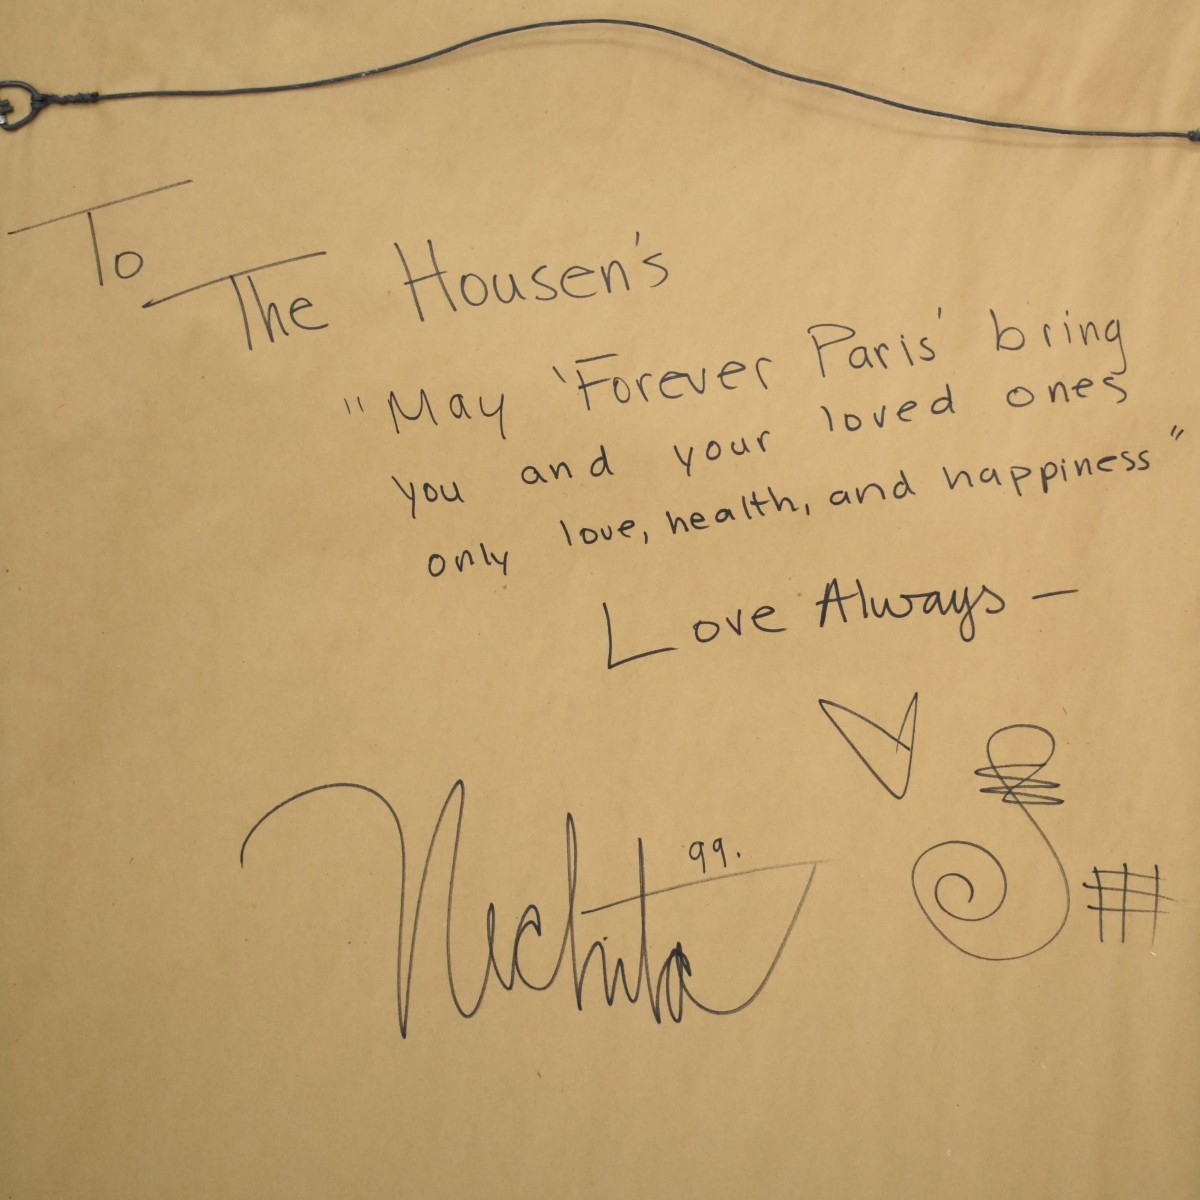 To
The Housen's
"May 'Forever Paris' bring
you and your loved ones
only love, health, and happiness"
Love Always —
Nechita 99.